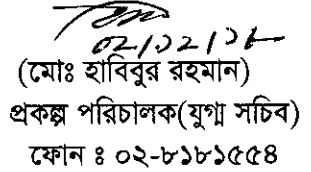 (মোঃ হাবিবুর রহমান)
প্রকল্প পরিচালক(যুগ্ম সচিব)
ফোন ঃ ০২-৮১৮১৫৫৪